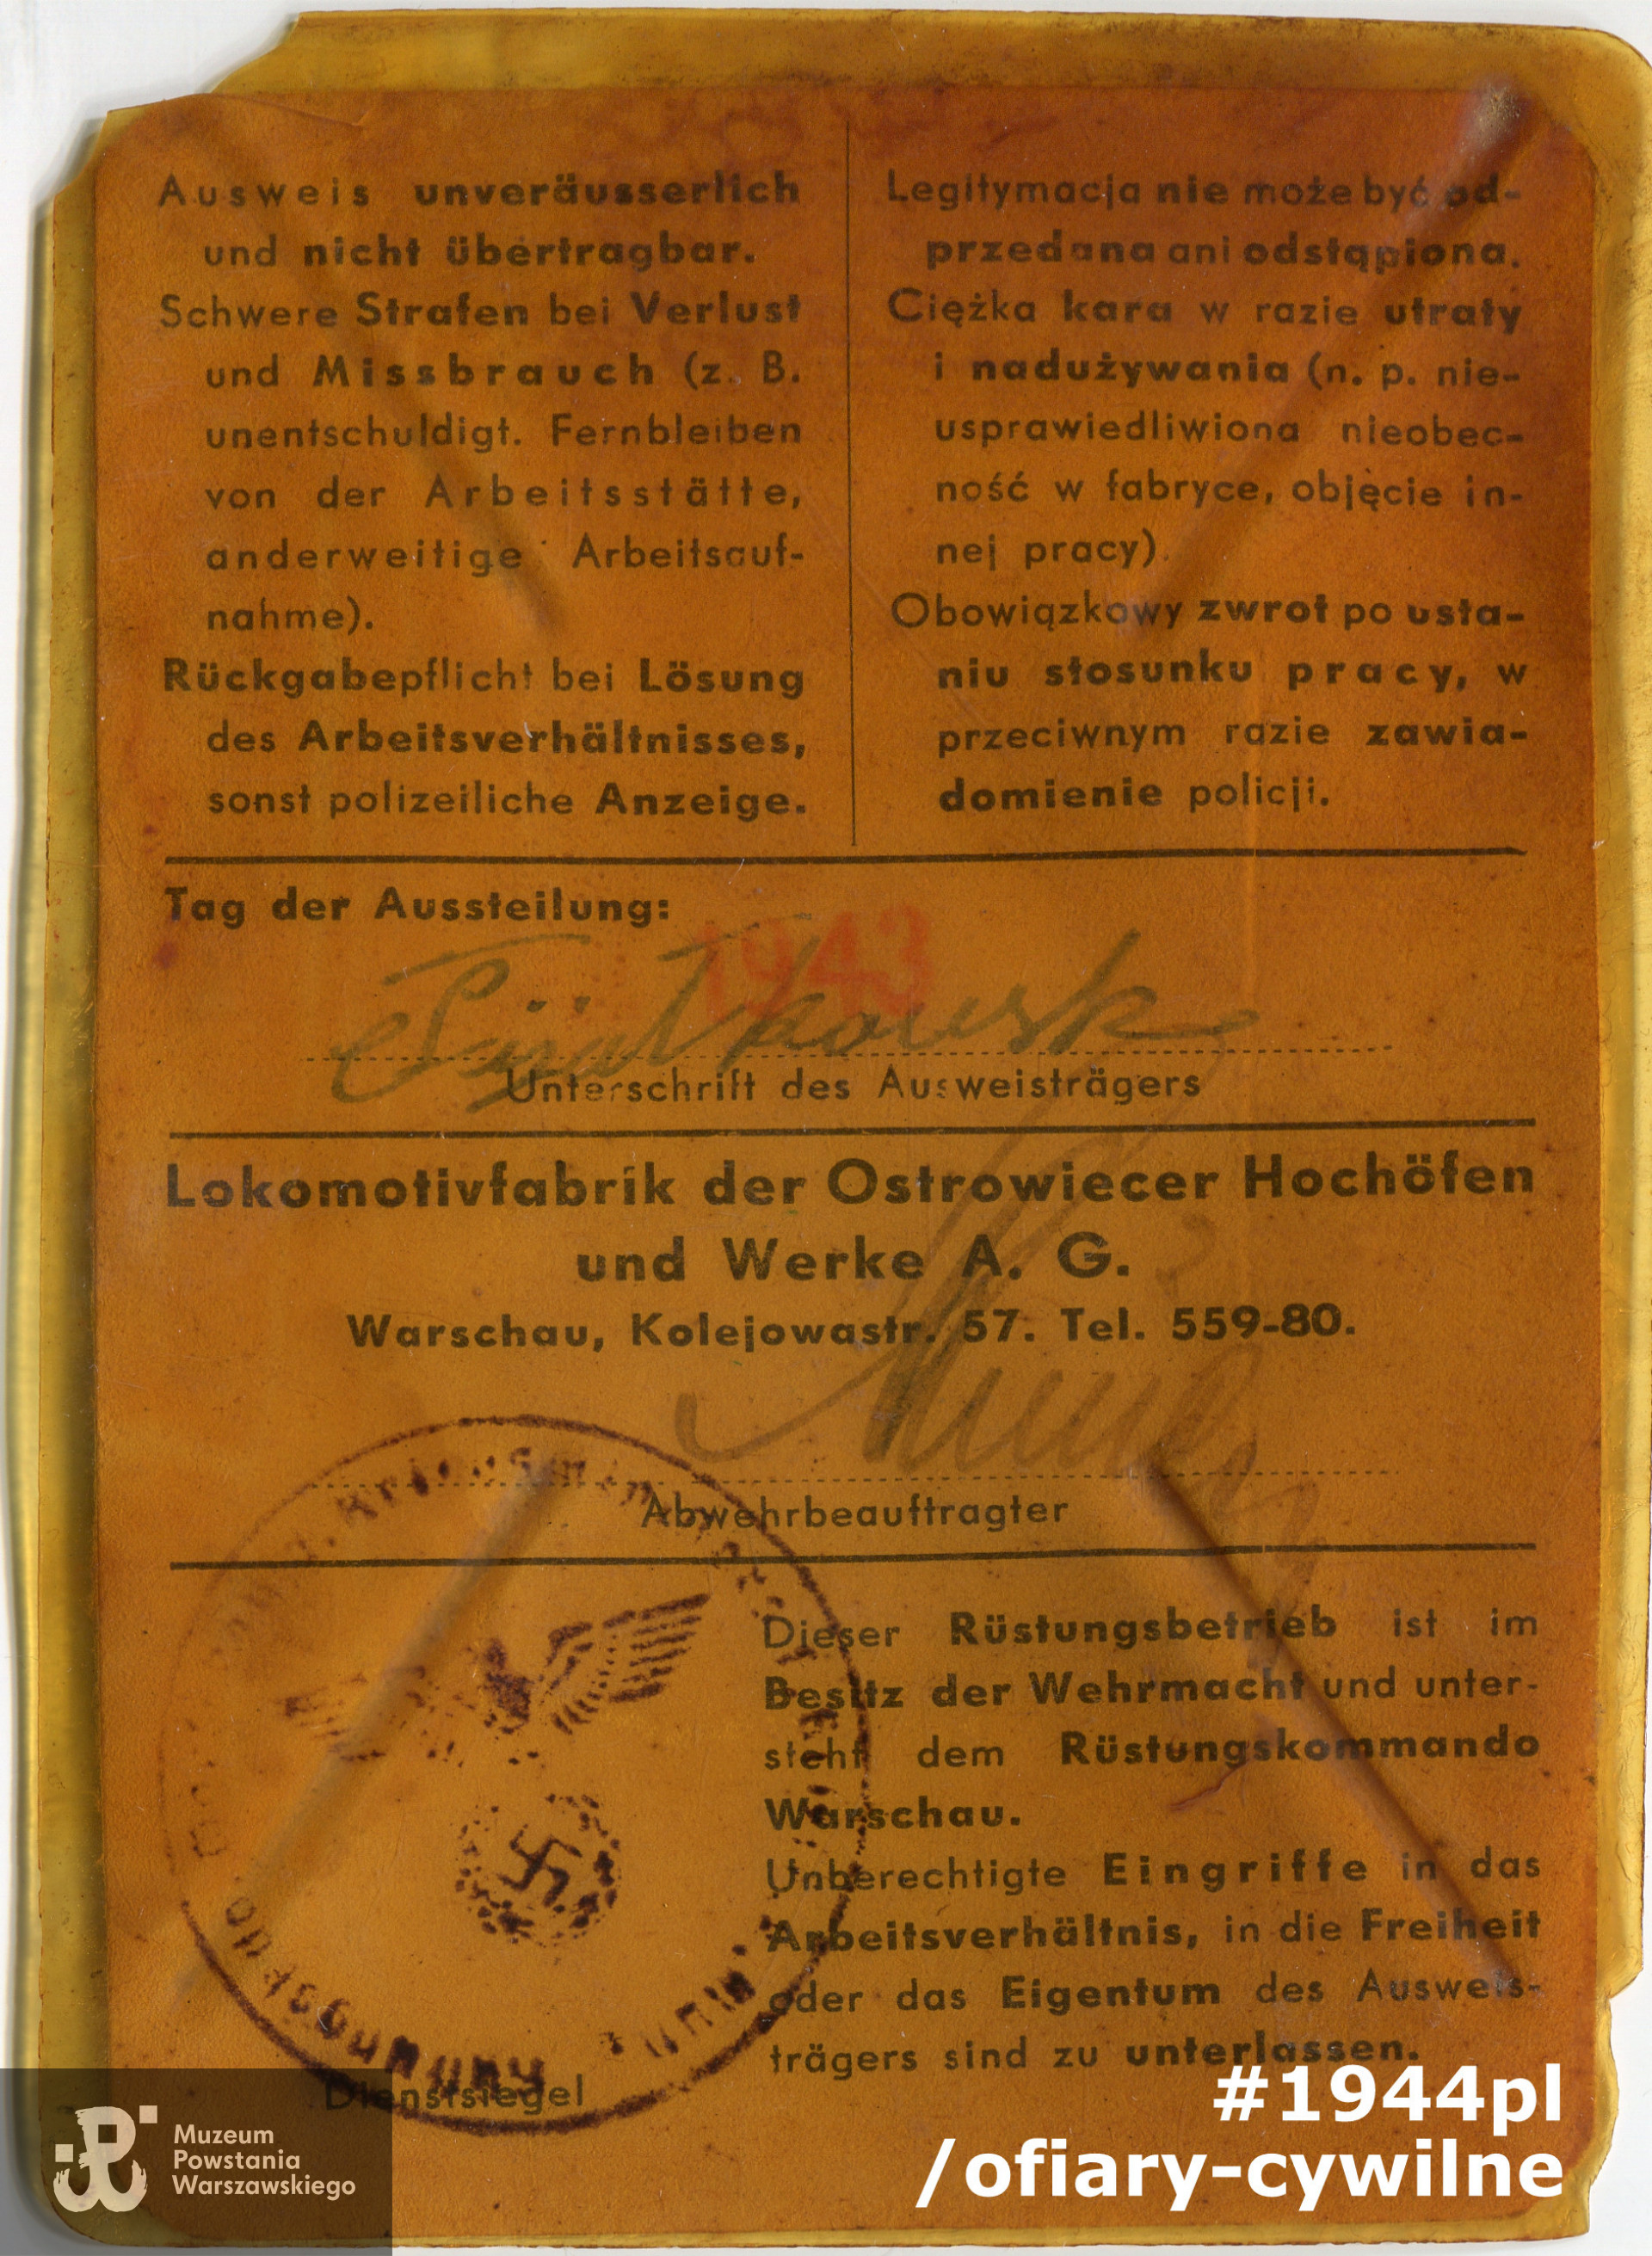 Ausweis unveräusserlich
und nicht übertragbar.
Schwere Strafen bei Verlust
und Missbrauch (z. B.
unentschuldigt. Fernbleiben
von der Arbeitsstätte,
anderweitige Arbeitsauf-
nahme).
Rückgabepflicht bei Lösung
des Arbeitsverhältnisses,
sonst polizeiliche Anzeige.
Legitymacja nie może być od-
przedana ani odstąpiona.
Ciężka kara w razie utraty
i nadużywania (n. p. nie-
usprawiedliwiona nieobec-
ność w fabryce, objęcie in-
nej pracy).
Obowiązkowy zwrot po usta-
niu stosunku pracy, w
przeciwnym razie zawia-
domienie policji.
Tag der Ausstellung:
1943
Unterschrift des Ausweisträgers
Lokomotivfabrik der Ostrowiecer Hochöfen
und Werke A. G.
Warschau, Kolejowastr. 57. Tel. 559-80.
Abwehrbeauftragter
Dieser Rüstungsbetrieb ist im
Besitz der Wehrmacht und unter-
steht dem Rüstungskommando
Warschau.
Unberechtigte Eingriffe in das
Arbeitsverhältnis, in die Freiheit
oder das Eigentum des Ausweis-
trägers sind zu unterlassen.
Dienstsiegel
Muzeum
Powstania
Warszawskiego
#1944pl
/ofiary-cywilne